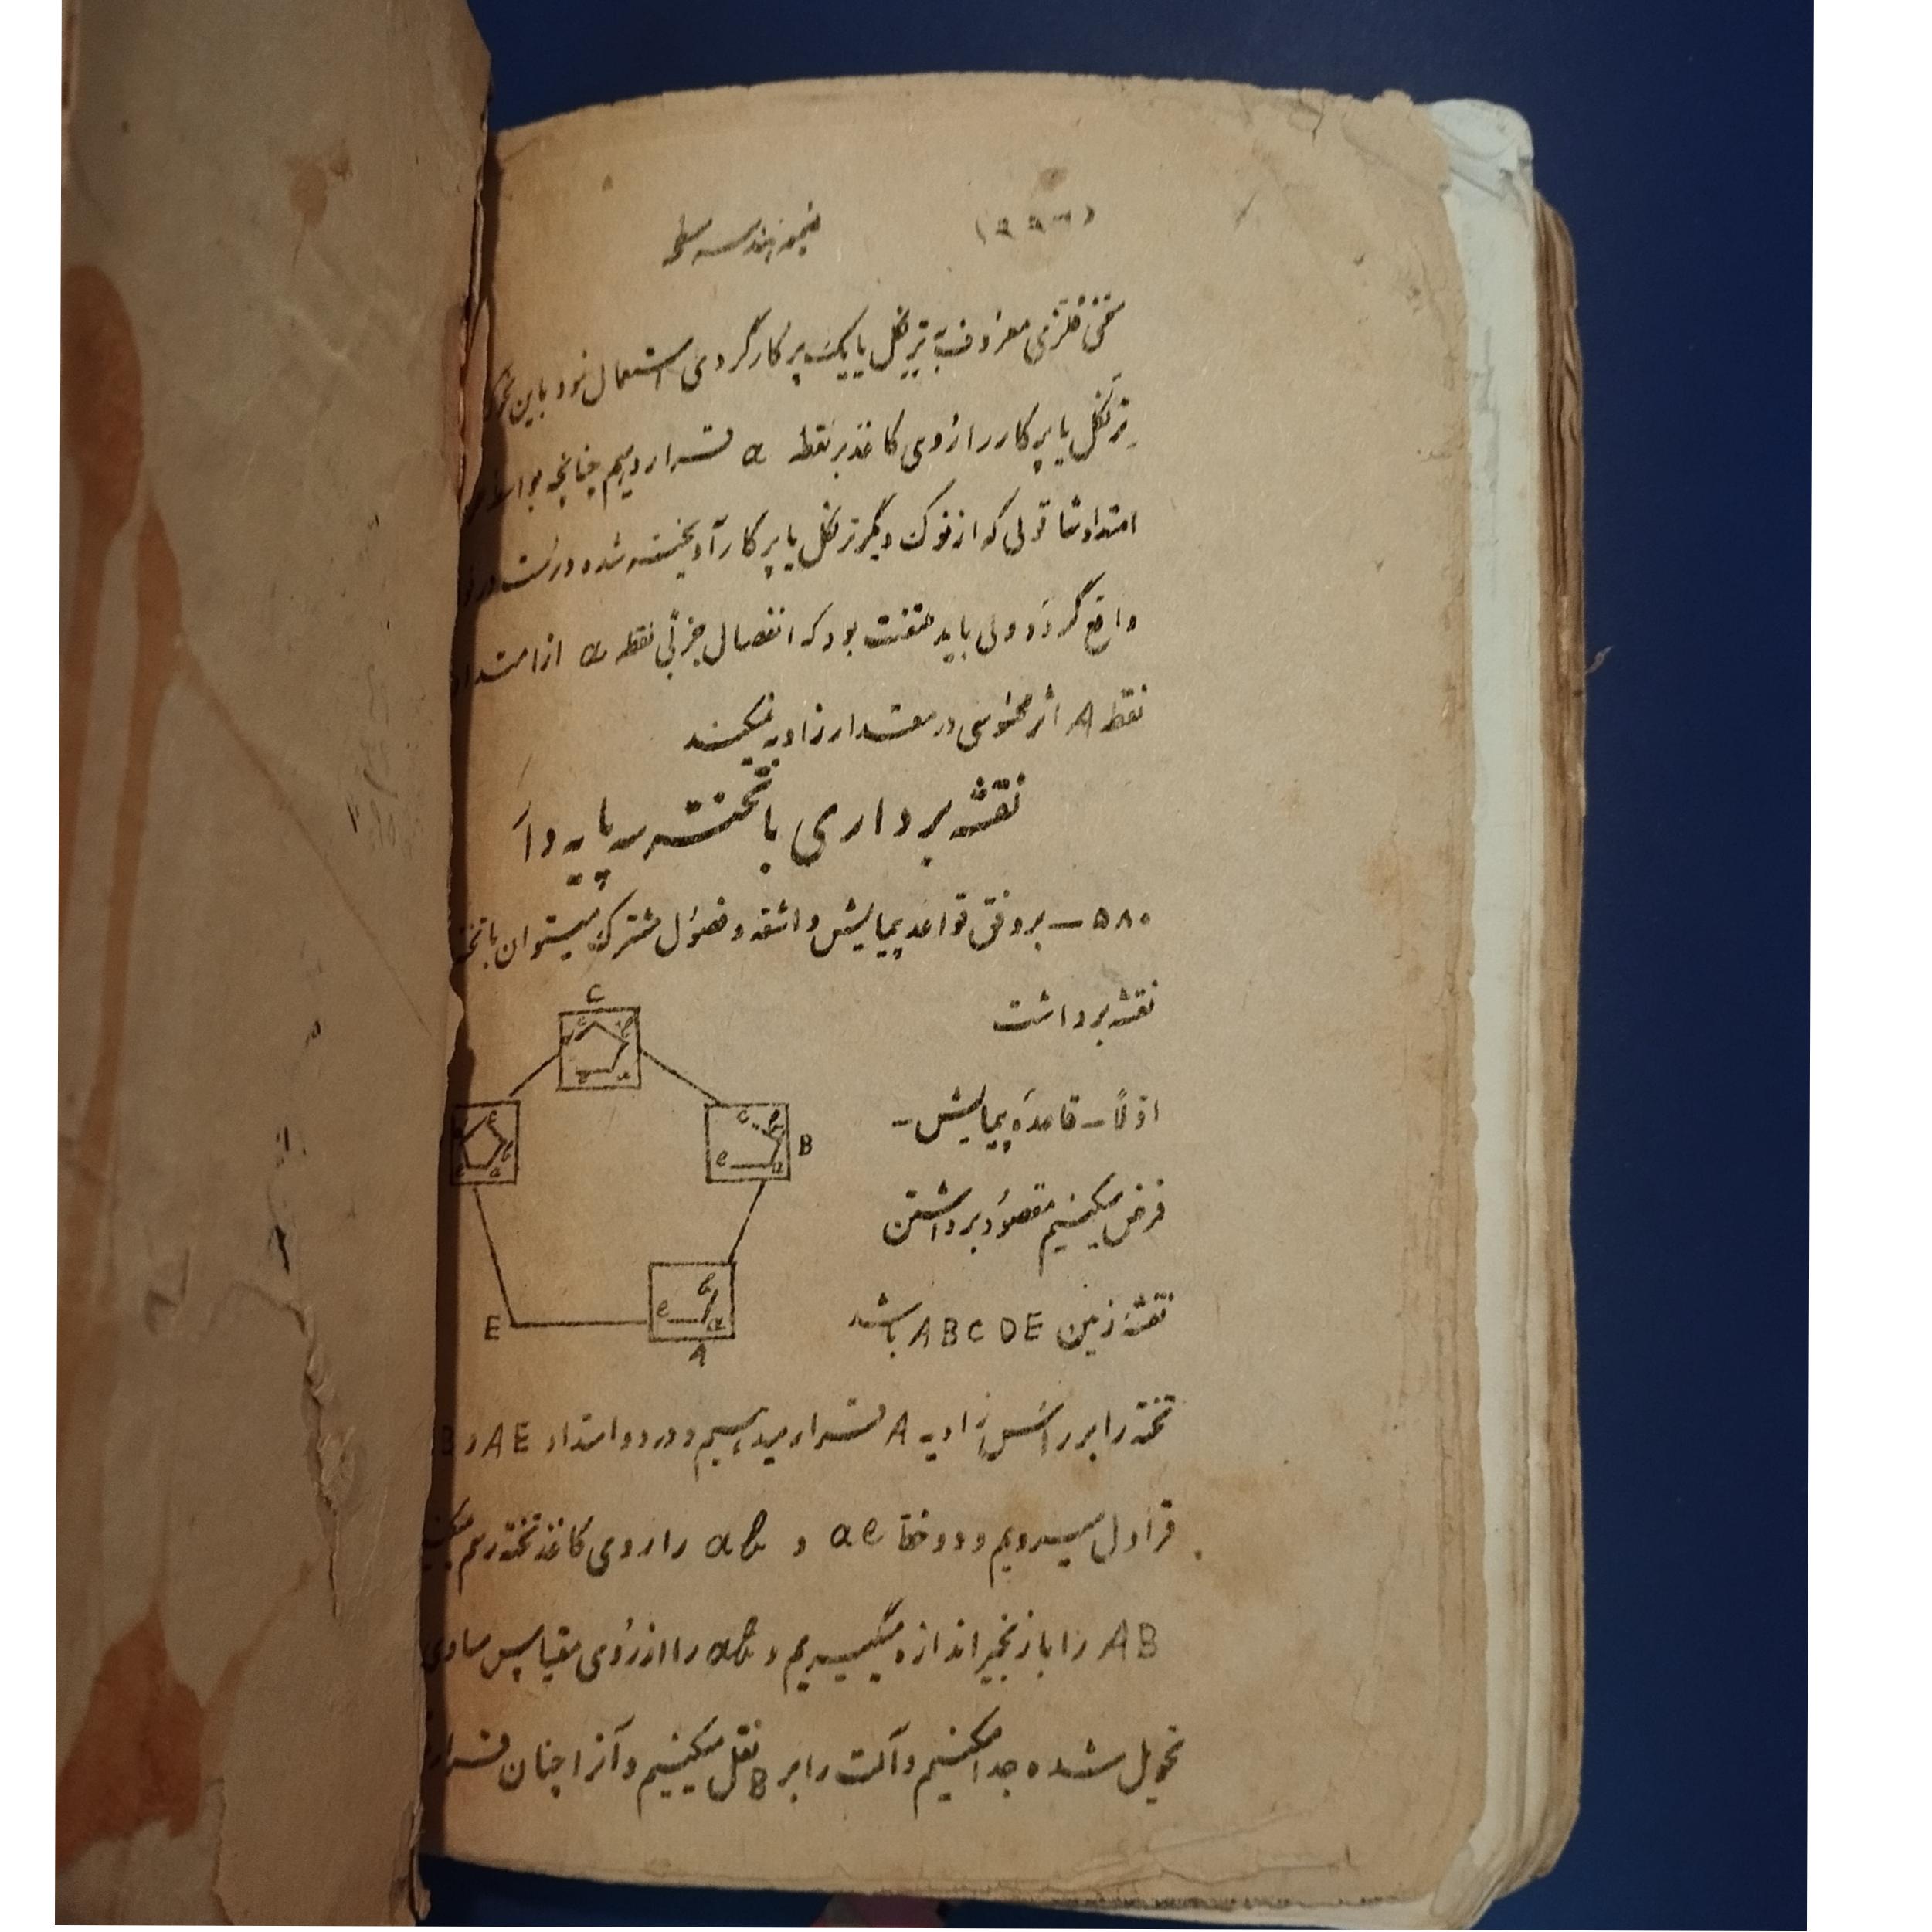 ضمیمه هندسه سطحه
منحنی فلزی معروف به ترنگل یا یک پرکار گردی استعمال نمود باین نحو
ترنگل یا پرکار را از روی کاغذ بر نقطه a قرار دهیم چنانچه
امتداد شاقولی که از نوک دیگر ترنگل یا پرکار آویخته شده درست در
واقع گردد ولی باید ملتفت بود که انفصال جزئی نقطه a از امتداد
نقطه A اثر محسوسی در مقدار زاویه نمیکند
نقشه برداری با تخته سه پایه و آ
۵۸۰ – بر وفق قواعد پیمایش و اشعه و فصول مشترک میتوان با
نقشه برداشت
C
c
c
B
e
a
اولاً – قاعدهٔ پیمایش –
فرض میکنیم مقصود برداشتن
نقشهٔ زمین ABCDE باشد
E
e
a
A
تخته را بر رأس زاویه A قرار میدهیم و در دو امتداد AE و B
قراول میرویم و دو خط ae و ab را روی کاغذ تخته رسم
AB را با زنجیر اندازه میگیریم و ab را از روی مقیاس مساوی
تحویل شده جدا میکنیم و آلت را بر B نقل میکنیم و آنرا چنان قرار